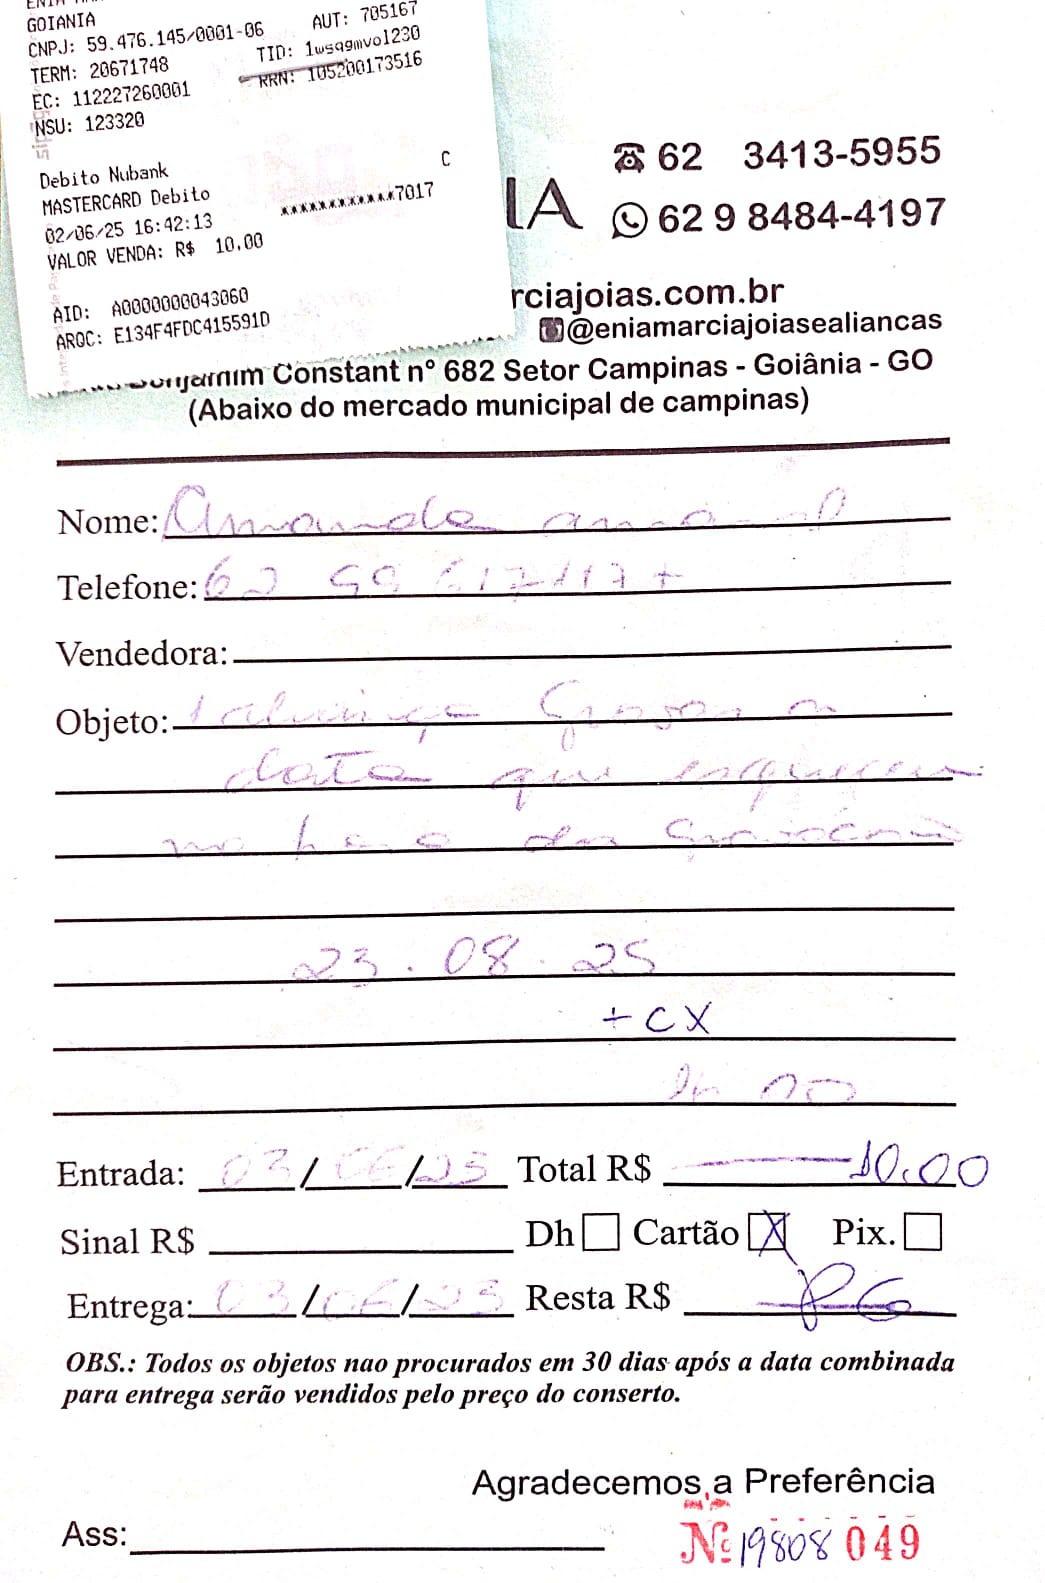 GOIANIA
CNPJ: 59.476.145/0001-06 AUT: 705167
TERM: 20671748 TID: 1wsqgmvo1230
EC: 112227260001 RRN: 105200173516
NSU: 123320
Debito Nubank C
MASTERCARD Debito
02/06/25 16:42:13 ************7017
VALOR VENDA: R$ 10,00
AID: A0000000043060
ARQC: E134F4FDC415591D
IA
62 3413-5955
62 9 8484-4197
rciajoias.com.br
@eniamarciajoiasealiancas
Constant nº 682 Setor Campinas - Goiânia - GO
(Abaixo do mercado municipal de campinas)
Nome: Amanda
Telefone: 62
Vendedora:
Objeto: 1 aliança
data que
23.08.25
+ CX
Entrada: 03/06/25 Total R$ 10,00
Sinal R$ Dh Cartão X Pix.
Entrega: 03/06/25 Resta R$ PG
OBS.: Todos os objetos nao procurados em 30 dias após a data combinada
para entrega serão vendidos pelo preço do conserto.
Agradecemos a Preferência
Ass: Nº 19808 049